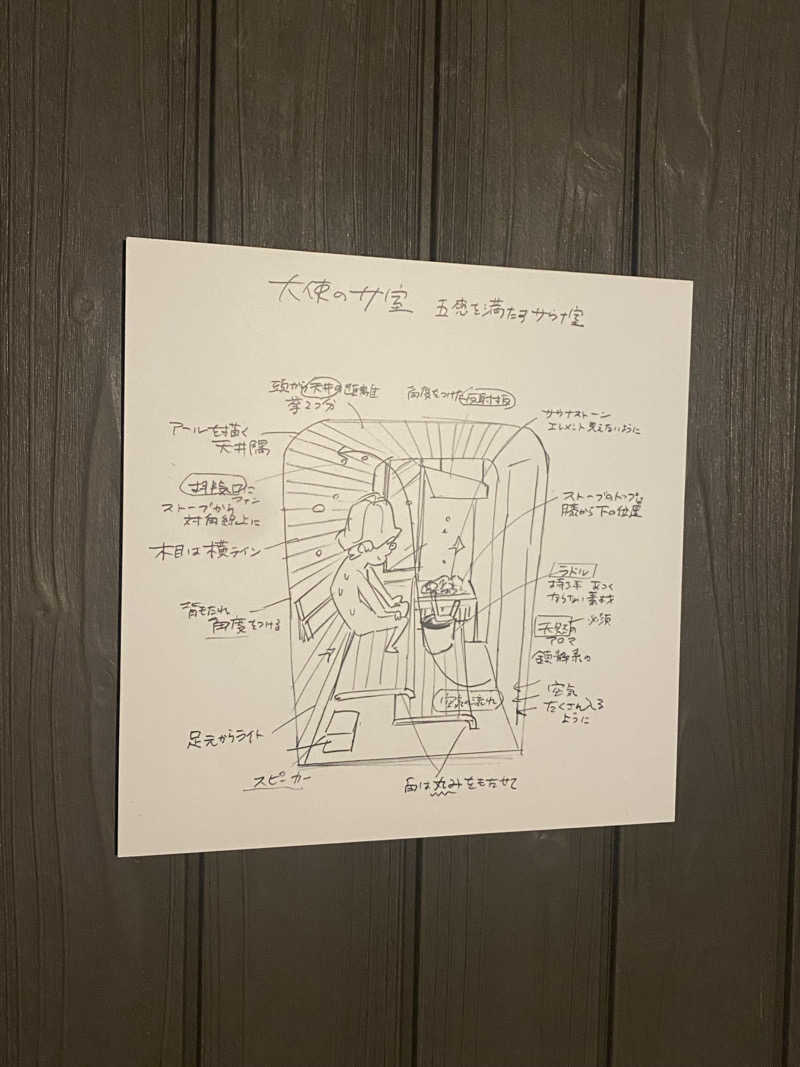 大使のサ室
五感を満たすサウナ室
頭から天井の距離
拳2つ分
角度をつけた反射板
サウナストーン
エレメント見えないように
アールを描く
天井隅
排気口に
ファン
ストーブから
対角線上に
木目は横ライン
背もたれ
角度をつける
足元からライト
スピーカー
ストーブのトップは
膝から下の位置
ラドル
持ち手 あつく
ならない素材
天然の
アロマ
必須
鎮静系の
空気
たくさん入る
ように
空気の流れ
角は丸みをもたせて